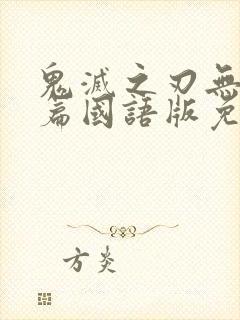 鬼滅之刃無
篇國語版免
方炎